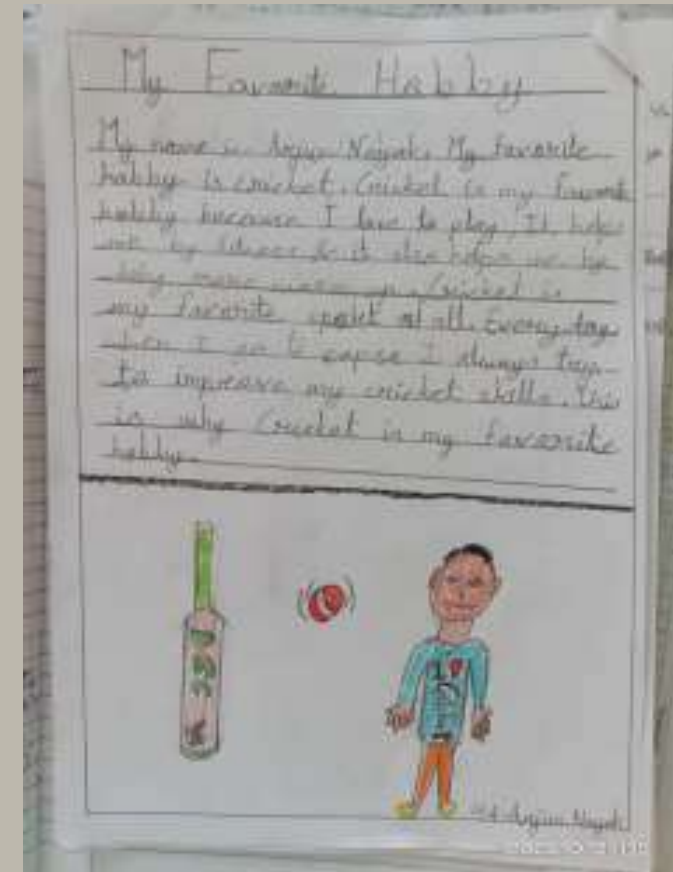 My Favorite Habby
My name is Arjun Nayak. My Favorite
habby is cricket. Cricket is my Favorite
habby because I love to play. It helps
me by fitness & it also helps me by
Cricket is
my favorite at all. Every day
when I go to I always try
to improve my cricket skills. This
is why Cricket is my Favorite
habby.
Arjun Nayak